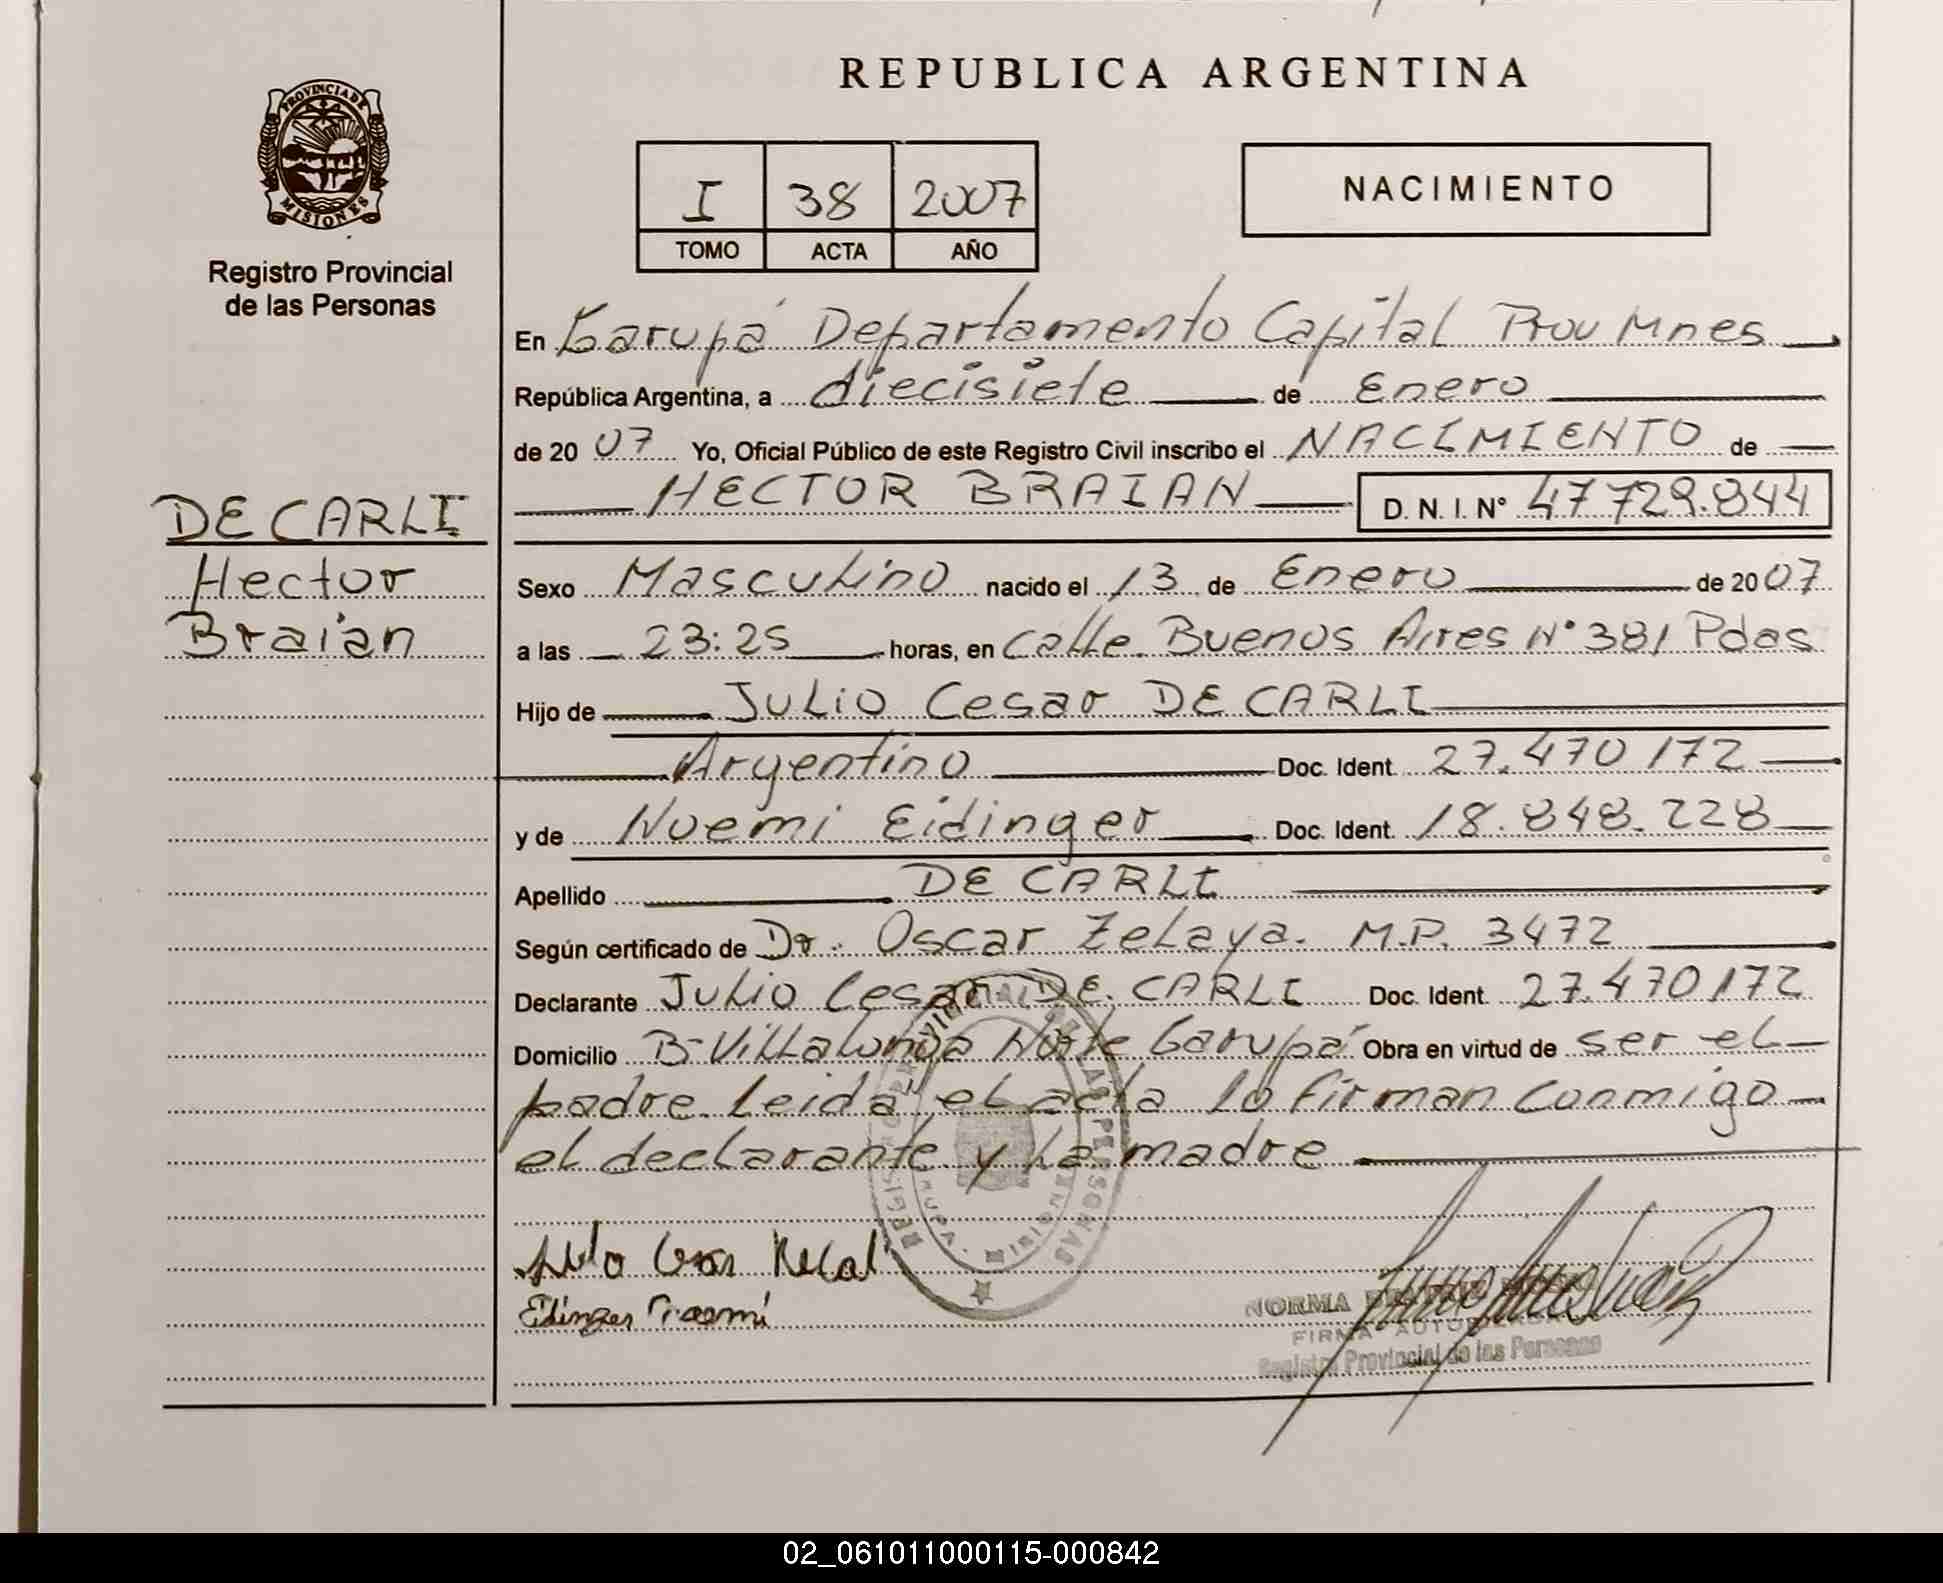 REPUBLICA ARGENTINA
PROVINCIA DE
MISIONES
Registro Provincial
de las Personas
I 38 2007
TOMO ACTA AÑO
NACIMIENTO
En Garupá Departamento Capital Prov Mnes
República Argentina, a diecisiete de Enero
de 2007 Yo, Oficial Público de este Registro Civil inscribo el NACIMIENTO de
HECTOR BRAIAN D. N. I. N° 47 729.844
DE CARLI
Hector
Braian
Sexo Masculino nacido el 13 de Enero de 2007
a las 23:25 horas, en Calle Buenos Aires N° 381 Pdas
Hijo de Julio Cesar DE CARLI
Argentino Doc. Ident. 27.470 172
y de Noemi Eidinger Doc. Ident. 18.848.228
Apellido DE CARLI
Según certificado de Dr. Oscar Zelaya. M.P. 3472
Declarante Julio Cesar DE CARLI Doc. Ident. 27.470172
Domicilio B-Villalonga Norte Garupá Obra en virtud de ser el
padre Leida el acta lo firman conmigo
el declarante y La madre
Eidinger Noemí
NORMA
FIRMA AUTORIZADA
Registro Provincial de las Personas
02_061011000115-000842